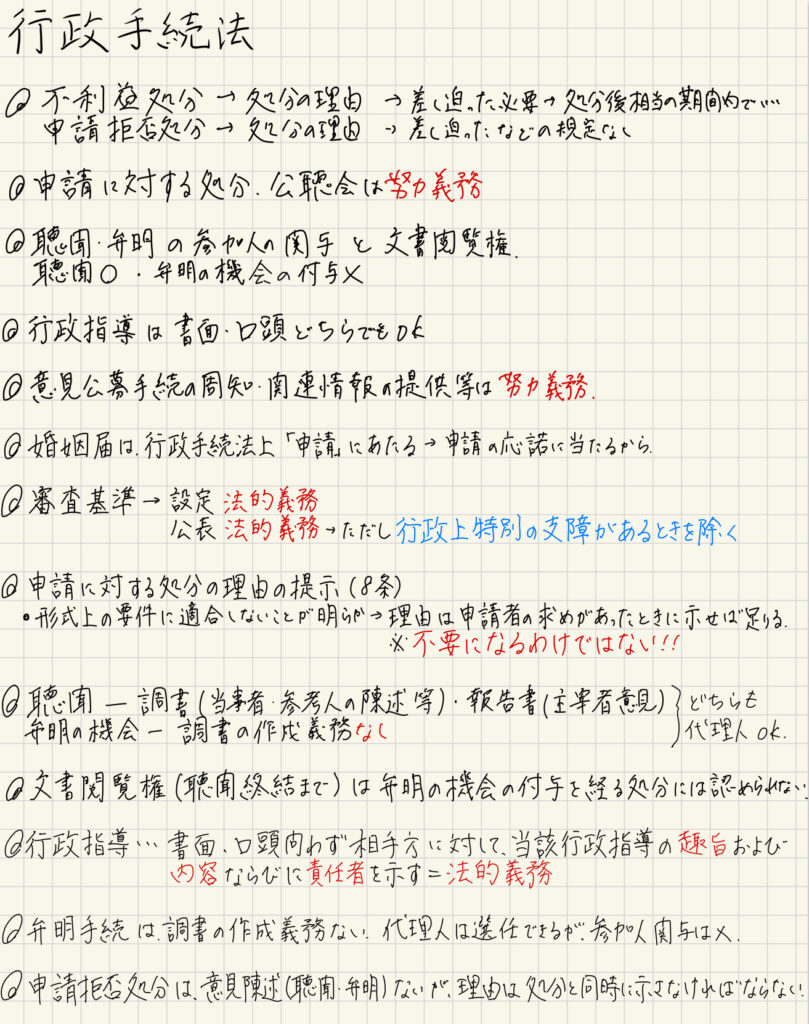 行政手続法
◎ 不利益処分 → 処分の理由 → 差し迫った必要 → 処分後相当の期間内で……
申請拒否処分 → 処分の理由 → 差し迫ったなどの規定なし
◎ 申請に対する処分、公聴会は努力義務
◎ 聴聞・弁明の参加人の関与と文書閲覧権.
聴聞○ ・弁明の機会の付与×
◎ 行政指導は書面・口頭どちらでもOK
◎ 意見公募手続の周知・関連情報の提供等は努力義務.
◎ 婚姻届は、行政手続法上「申請」にあたる → 申請の応諾に当たるから.
◎ 審査基準 → 設定 法的義務
公表 法的義務 → ただし行政上特別の支障があるときを除く
◎ 申請に対する処分の理由の提示 (8条)
• 形式上の要件に適合しないことが明らか → 理由は申請者の求めがあったときに示せば足りる.
※不要になるわけではない!!
◎ 聴聞 ― 調書(当事者・参考人の陳述等)・報告書(主宰者意見) } どちらも
弁明の機会 ― 調書の作成義務なし 代理人OK.
◎ 文書閲覧権(聴聞終結まで)は弁明の機会の付与を経る処分には認められない.
◎ 行政指導… 書面、口頭問わず相手方に対して、当該行政指導の趣旨および
内容ならびに責任者を示す=法的義務
◎ 弁明手続は、調書の作成義務ない. 代理人は選任できるが、参加人関与は×.
◎ 申請拒否処分は、意見陳述(聴聞・弁明)ないが、理由は処分と同時に示さなければならない.